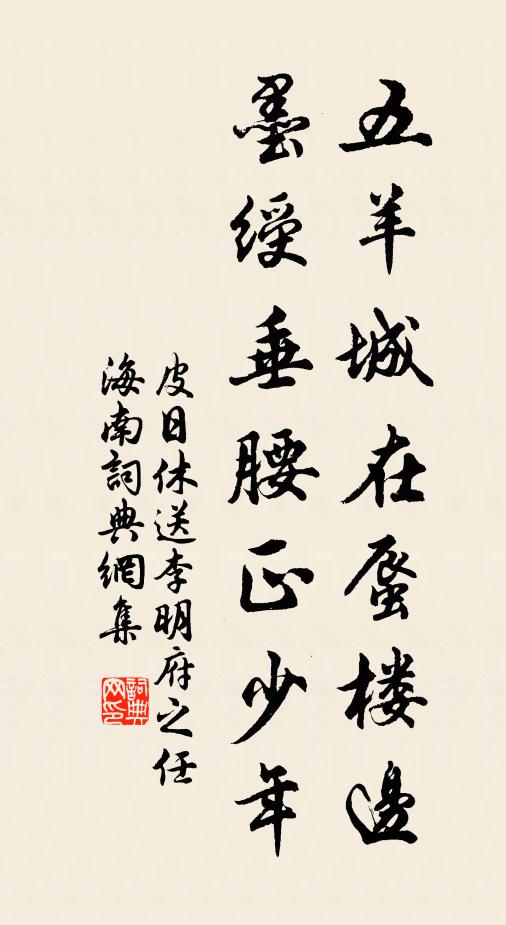 五羊城在蜃楼邊
墨綬垂腰正少年
皮日休送李明府之任
海南詞典網集
詞典网印